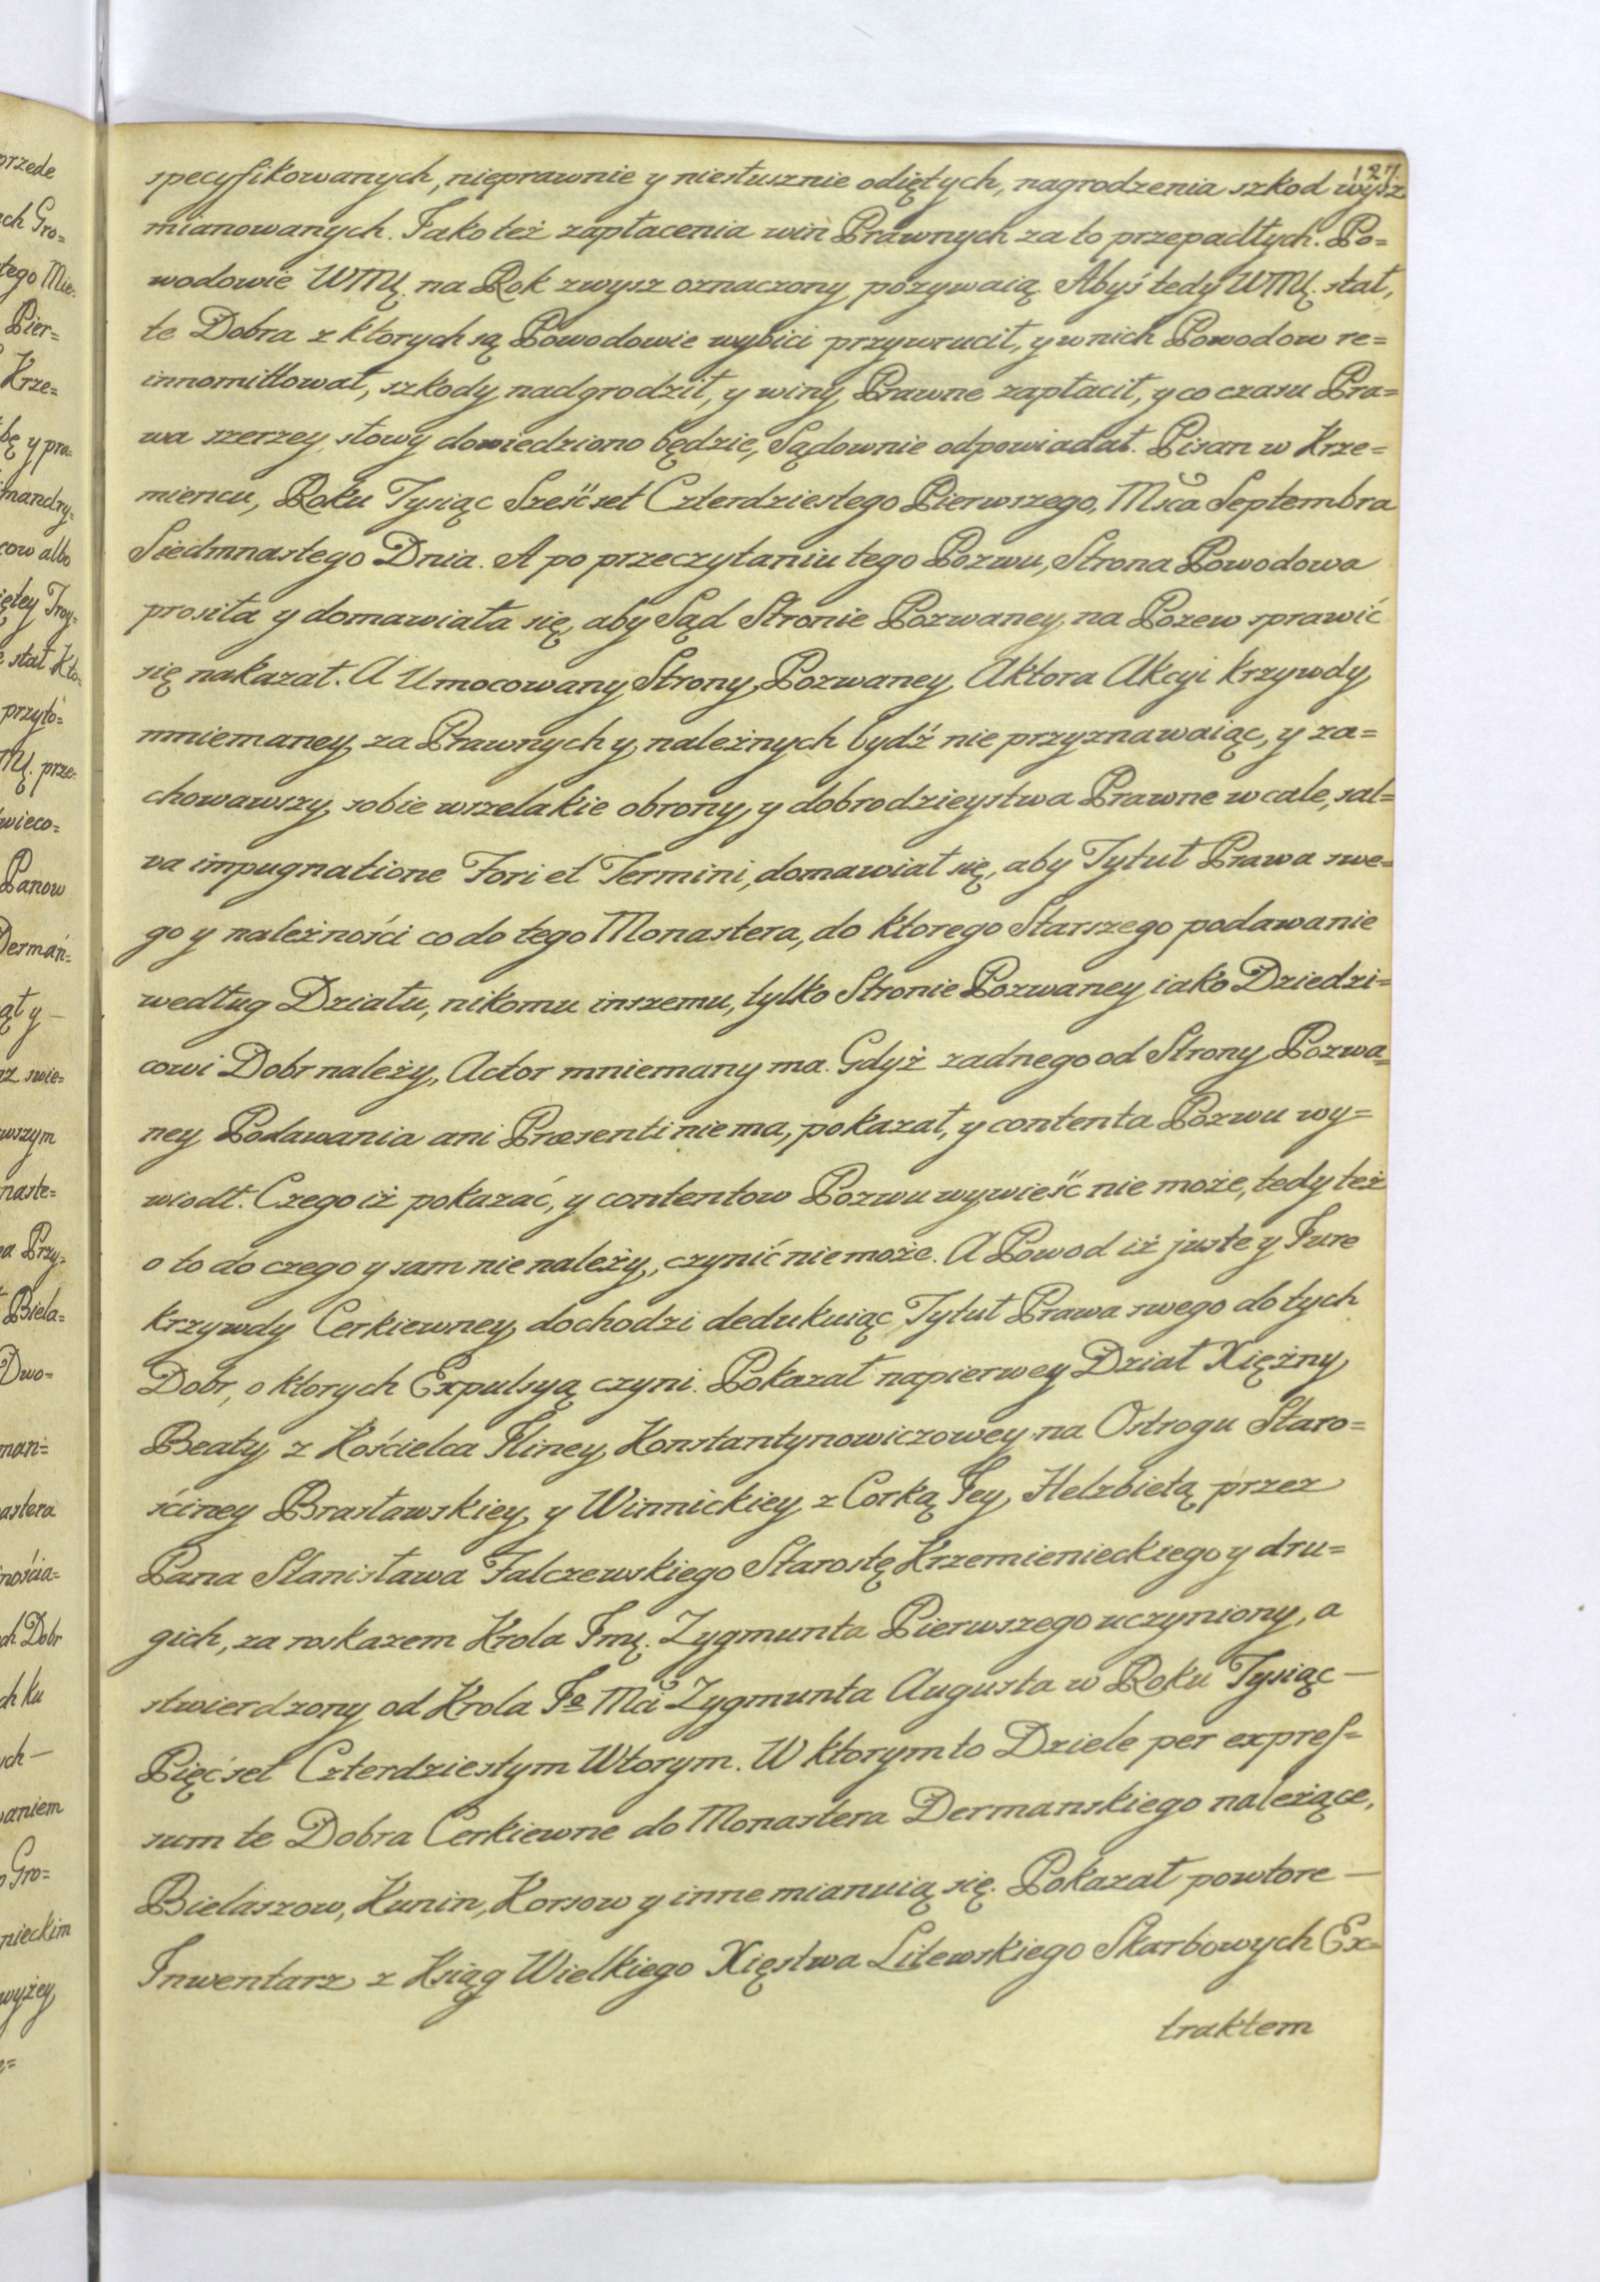 127.
specyfikowanych, nieprawnie y niesłusznie odiętych, nagrodzenia szkod wysz
mianowanych. Jako też zapłacenia win Prawnych za to przepadłych. Po=
wodowie WMĘ. na Rok zwysz oznaczony pozywaią. Abyś tedy WMĘ. stał,
te Dobra z ktorych są Powodowie wybici przywrucił, y w nich Powodow re=
innomittował, szkody nadgrodził, y winy Prawne zapłacił, y co czasu Pra=
wa szerzey słowy dowiedziono będzie, Sądownie odpowiadał. Pisan w Krze=
miencu, Roku Tysiąc Sześćset Czterdziestego Pierwszego, Msca Septembra
Siedmnastego Dnia. A po przeczytaniu tego Pozwu, Strona Powodowa
prosiła y domawiała się, aby Sąd Stronie Pozwaney na Pozew sprawić
się nakazał. A Umocowany Strony Pozwaney Aktora Akcyi krzywdy
mniemaney za Prawnych y należnych bydź nie przyznawaiąc, y za=
chowawszy sobie wszelakie obrony y dobrodzieystwa Prawne w cale, sal=
va impugnatione Fori et Termini, domawiał się, aby Tytuł Prawa swe=
go y należności co do tego Monastera, do ktorego Starszego podawanie
według Działu, nikomu inszemu, tylko Stronie Pozwaney iako Dziedzi=
cowi Dobr należy, Actor mniemany ma. Gdyż zadnego od Strony Pozwa=
ney Podawania ani Præsenti nie ma, pokazał, y contenta Pozwu wy=
wiodł. Czego iż pokazać, y contentow Pozwu wywieść nie może, tedy też
o to do czego y sam nie należy, czynić nie może. A Powod iż juste y Jure
krzywdy Cerkiewney dochodzi dedukuiąc Tytuł Prawa swego do tych
Dobr, o ktorych Expulsyą czyni. Pokazał napierwey Dział Xiężny
Beaty z Kościelca Iliney Konstantynowiczowey na Ostrogu Staro=
ściney Brasławskiey y Winnickiey z Corką Jey Helzbietą przez
Pana Stanisława Falczewskiego Starostę Krzemienieckiego y dru=
gich, za roskazem Krola Jmę. Zygmunta Pierwszego uczyniony, a
stwierdzony od Krola Jo Mci Zygmunta Augusta w Roku Tysiąc —
Pięćset Czterdziestym Wtorym. W ktorym to Dziele per expres=
sum te Dobra Cerkiewne do Monastera Dermanskiego należące,
Bielaszow, Kunin, Korsow y inne mianuią się. Pokazał powtore —
Inwentarz z Ksiąg Wielkiego Xięstwa Litewskiego Skarbowych Ex=
traktem